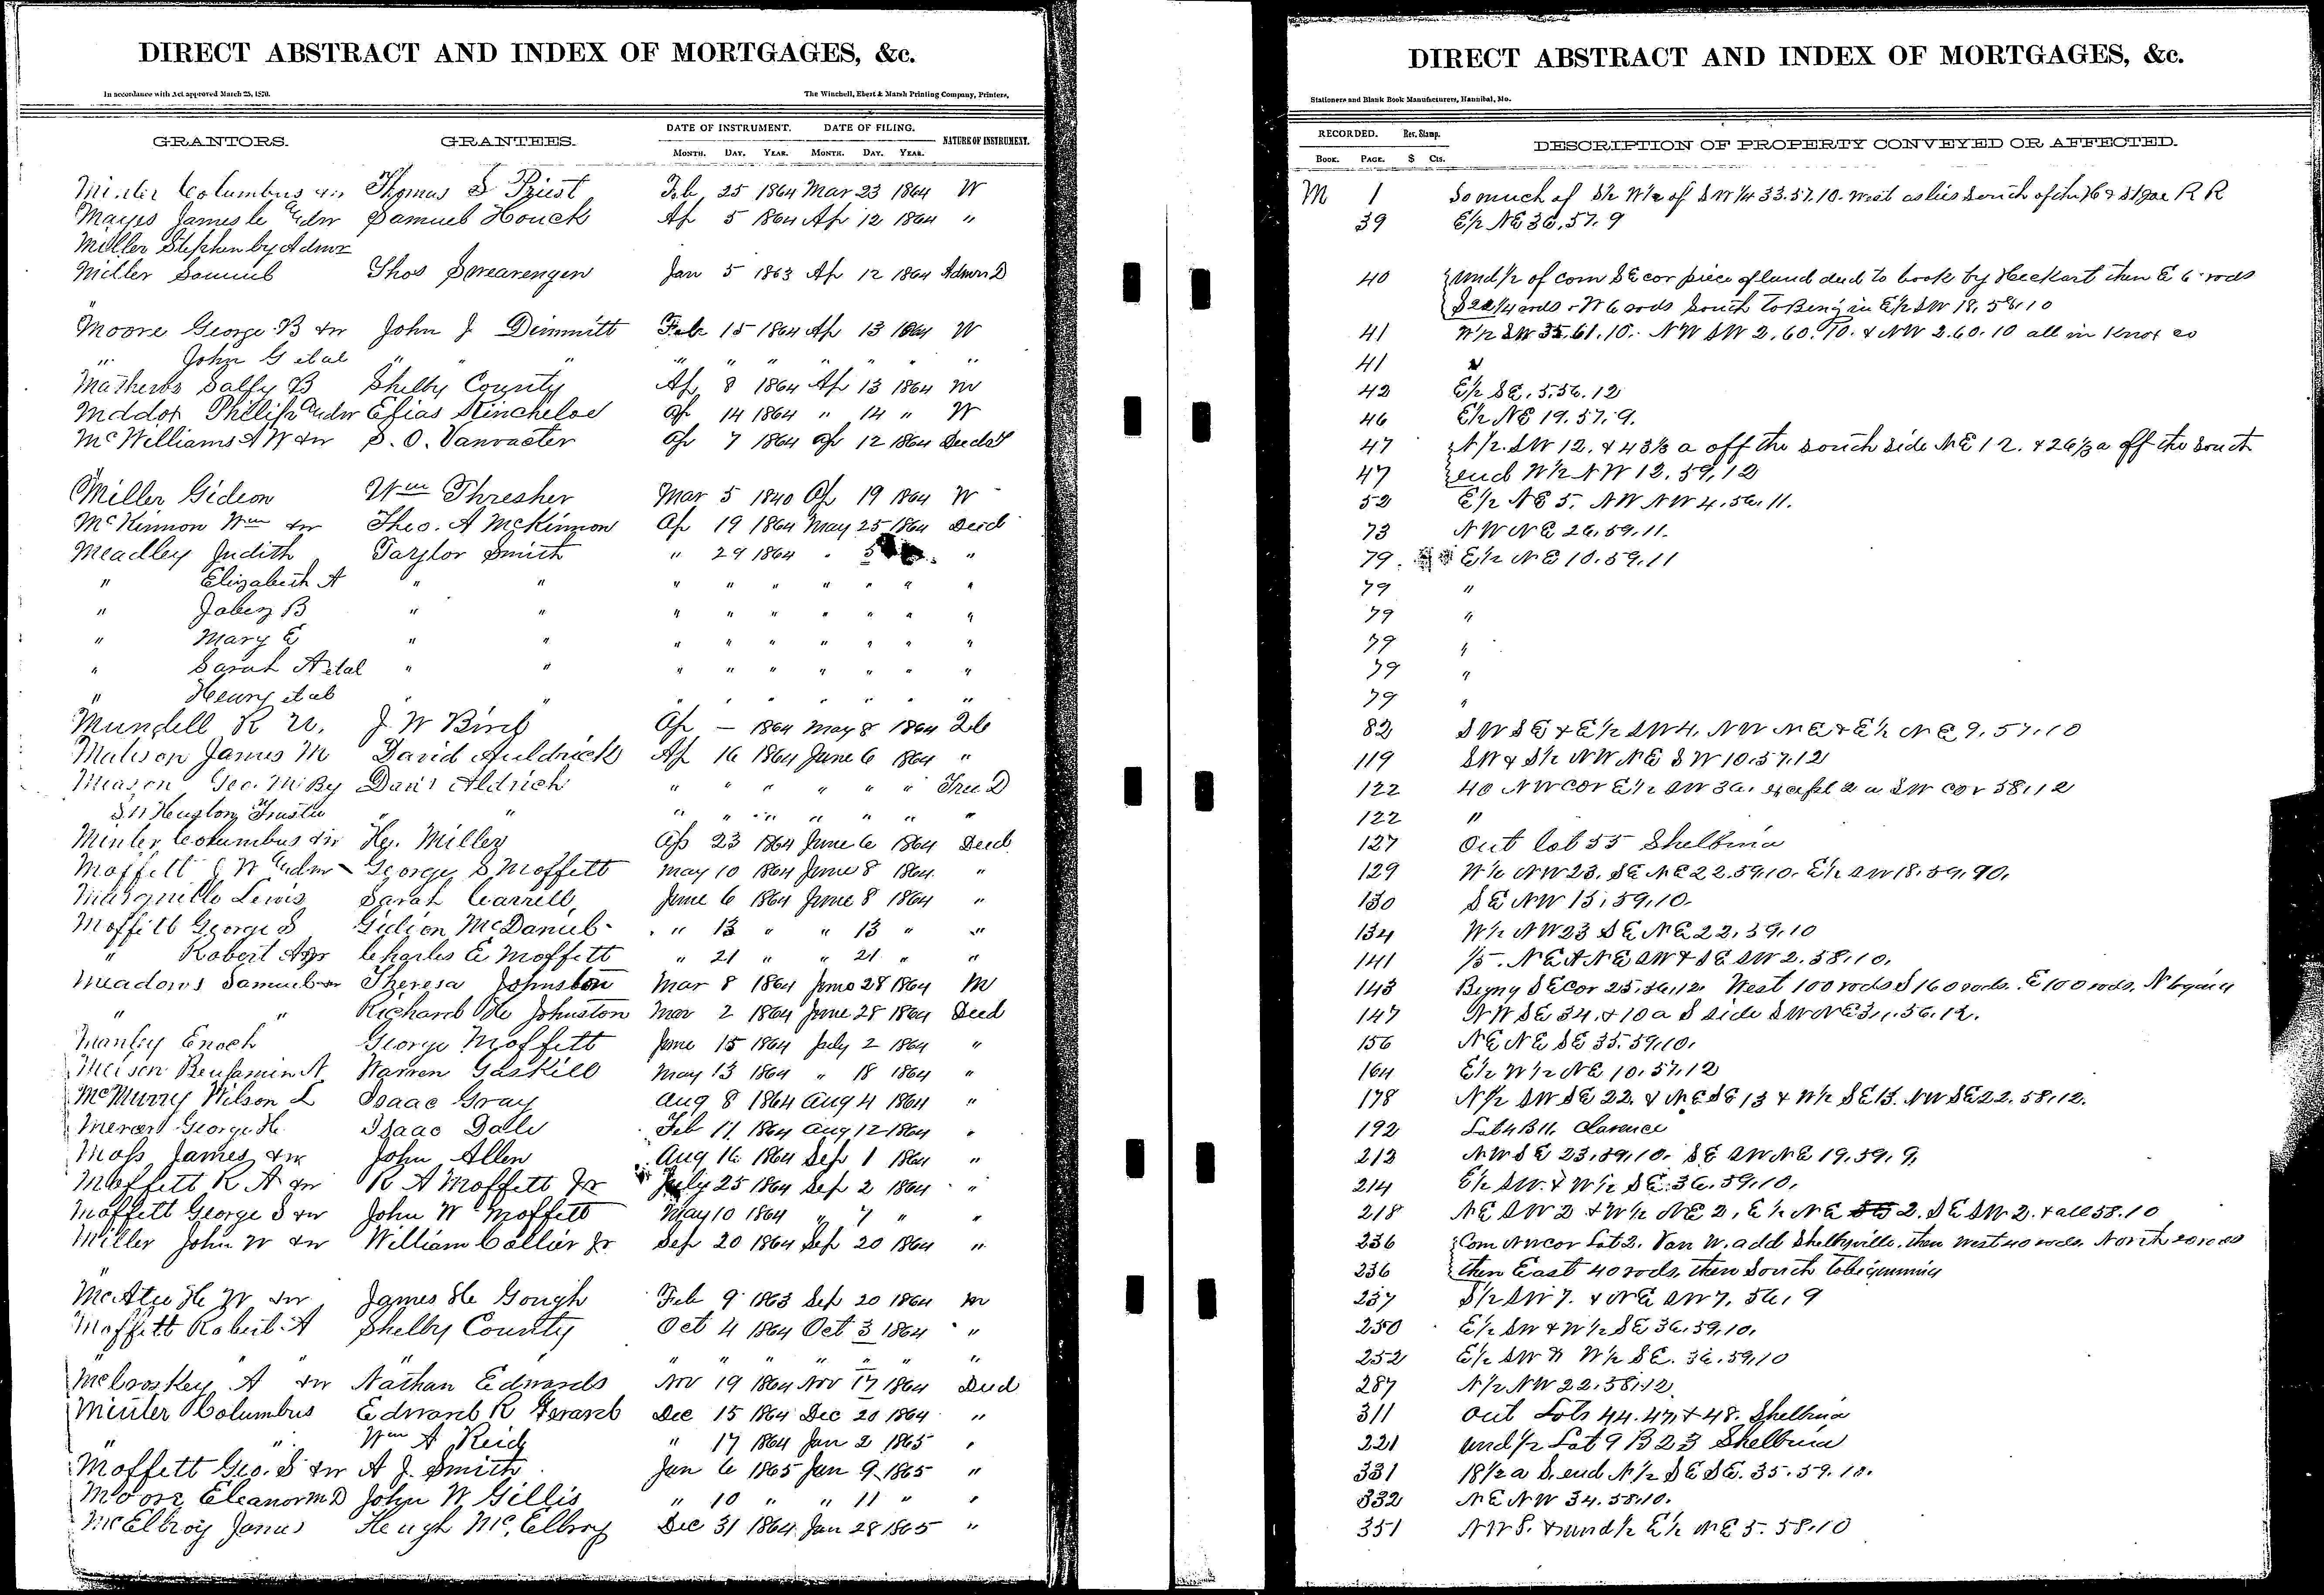 DIRECT ABSTRACT AND INDEX OF MORTGAGES, &c.
In accordance with Act approved March 25, 1870. The Winchell, Ebert & Marsh Printing Company, Printers,
GRANTORS. GRANTEES. DATE OF INSTRUMENT. DATE OF FILING. NATURE OF INSTRUMENT.
MONTH. DAY. YEAR. MONTH. DAY. YEAR.
Minter Columbus & wr Thomas S Priest Feb 25 1864 Mar 23 1864 W
Mayes James C & wr Samuel Houck Ap 5 1864 Ap 12 1864 "
Miller Stephen by Admr
Miller Samuel Thos Swearengen Jan 5 1863 Ap 12 1864 Admrs D
Moore George B & wr John J Dimmitt Feb 15 1864 Ap 13 1864 W
" John G et al " " " " " " " " "
Mathews Sally B Shelby County Ap 8 1864 Ap 13 1864 M
Maddox Philip & wr Elias Kincheloe Ap 14 1864 " 14 " W
McWilliams A W & wr S. O. Vanvacter Ap 7 1864 Ap 12 1864 Deed
Miller Gideon Wm Thresher Mar 5 1840 Ap 19 1864 W
McKinnon Wm & wr Theo. A McKinnon Ap 19 1864 May 25 1864 Deed
Meadley Judith Taylor Smith " 29 1864 " 5 "
" Elizabeth A " " " " " " " " "
" Jabez B " " " " " " " " "
" Mary E " " " " " " " " "
" Sarah A et al " " " " " " " " "
" Henry et al " " " " " " " " "
Mundell R W. J. W Bird Ap — 1864 May 8 1864
James M David Auldrick Ap 16 1864 June 6 1864 "
Geo. M By Davis Aldrich " " " " " " Trus D
Heuston Trustee " " " " " " " " "
Minter Columbus & wr Hy. Miller Ap 23 1864 June 6 1864 Deed
Moffett & wr George S Moffett May 10 1864 June 8 1864 "
Lewis Sarah Carrell June 6 1864 June 8 1864 "
Moffett George S Gideon McDaniel " 13 " " 13 " "
" Robert A Charles E Moffett " 21 " " 21 " "
Meadows Samuel & wr Theresa Johnston Mar 8 1864 June 28 1864 M
" " Richard H Johnston Mar 2 1864 June 28 1864 Deed
Manley Enoch George Moffett June 15 1864 July 2 1864 "
Benjamin N Warren Gaskill May 13 1864 " 18 1864 "
McMurry Wilson L Isaac Gray Aug 8 1864 Aug 4 1864 "
Mercer George H. Isaac Dale Feb 11 1864 Aug 12 1864 "
Moss James & wr John Allen Aug 16 1864 Sep 1 1864 "
Moffett R A & wr R A Moffett Jr July 25 1864 Sep 2 1864 "
Moffett George S & wr John W Moffett May 10 1864 " 7 " "
Miller John W & wr William Collier Jr Sep 20 1864 Sep 20 1864 "
McAtee H W & wr James H Gough Feb 9 1863 Sep 20 1864 M
Moffett Robert A Shelby County Oct 4 1864 Oct 3 1864 "
" " " " " " " " "
McCroskey A & wr Nathan Edwards Nov 19 1864 Nov 17 1864 Deed
Minter Columbus Edward R Dec 15 1864 Dec 20 1864 "
" " Wm A Reid " 17 1864 Jan 2 1865 "
Moffett Geo. S & wr A J. Smith Jan 6 1865 Jan 9 1865 "
Moore Eleanor M D John W. Gillis " 10 " " 11 " "
McElroy James Heugh McElroy Dec 31 1864 Jan 28 1865 "
DIRECT ABSTRACT AND INDEX OF MORTGAGES, &c.
Stationers and Blank Book Manufacturers, Hannibal, Mo.
RECORDED. Rev. Stamp. DESCRIPTION OF PROPERTY CONVEYED OR AFFECTED.
BOOK. PAGE. $ Cts.
M 1 So much of S½ W½ of SW¼ 33.57.10. West as lies south of the H & St Joe R R
39 E½ NE 36.57.9
40 Und½ of com SE cor piece of land deed to book by Heckart then E 6 rods
S 22¼ rods W 6 rods South to Beng in E½ SW 18.58.10
41 W½ SW 35.61.10. NW SW 2.60.10. & NW 2.60.10 all in Knox co
41 "
42 E½ SE. 5.56.12
46 E½ NE 19.57.9.
47 N½ SW 12. & 43⅓ a off the south side NE 12. & 26⅔ a off the south
47 end W½ NW 12.59.12
52 E½ NE 5. NW NW 4.56.11.
73 NW NE 26.59.11.
79 E½ NE 10.59.11
79 "
79 "
79 "
79 "
79 "
82 SW SE & E½ SW 4. NW NE & E½ NE 9.57.10
119 SW & S½ NW NE SW 10.57.12
122 40 NW cor E½ SW 3 a. except 2 a SW cor 58.12
122 "
127 Out lot 55 Shelbina
129 W½ NW 23. SE NE 22.59.10. E½ SW 18.59.90.
130 SE NW 15.59.10.
134 W½ NW 23 SE NE 22.59.10
141 1/5. NE & NE SW & SE SW 2.58.10.
143 Begng SE Cor 25.56.12. West 100 rods S 160 rods. E 100 rods. N begining
147 NW SE 34. & 10 a S side SW NE 34.56.12.
156 NE NE SE 35.59.10.
164 E½ W½ NE 10.57.12
178 N½ SW SE 22. & NE SE 13 & W½ SE 13. NW SE 22.58.12.
192 Lot 4 B 11. Clarence
212 NW SE 23.59.10. SE SW NE 19.59.9.
214 E½ SW. & W½ SE. 36.59.10.
218 NE SW 2 & W½ NE 2, E½ NE 2. SE SW 2. & all 58.10
236 Com NW cor Lot 2. Van W. add Shelbyville. then West 40 rods. North 20 rods
236 then East 40 rods, then South to beginning
237 S½ SW 7. & NE SW 7. 56.9
250 E½ SW & W½ SE 36.59.10.
252 E½ SW & W½ SE. 36.59.10
287 N½ NW 22.58.12.
311 Out Lots 44.47. & 48. Shelbina
221 und½ Lot 9 B 23 Shelbina
331 18½ a S. end N½ SE SE. 35.59.10.
332 NE NW 34.58.10.
351 NW 8. & und½ E½ NE 5.58.10